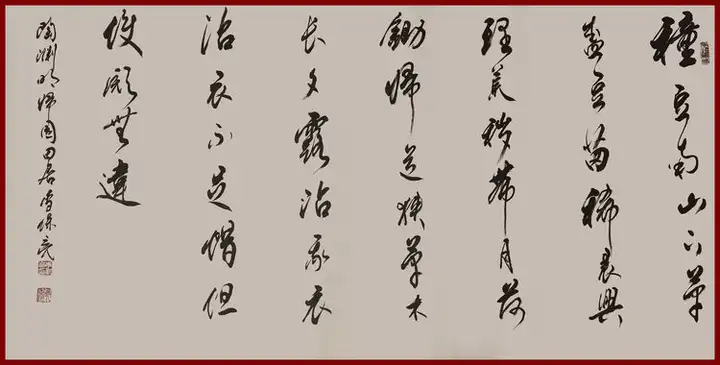 種豆南山下草
盛豆苗稀晨興
理荒穢帶月荷
鋤歸道狹草木
长夕露沾我衣
沾衣不足惜但
使願無違
陶渊明歸園田居